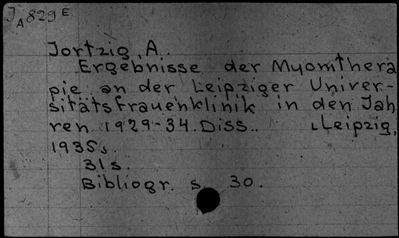 J
A 829 E
Jortzig, A.
Ergebnisse der Myomthera
pie an der Leipziger Univer-
sitätsfrauenklinik in den Jah
ren 1929-34. Diss.. Leipzig,
1935.
31 s.
Bibliogr. s. 30.